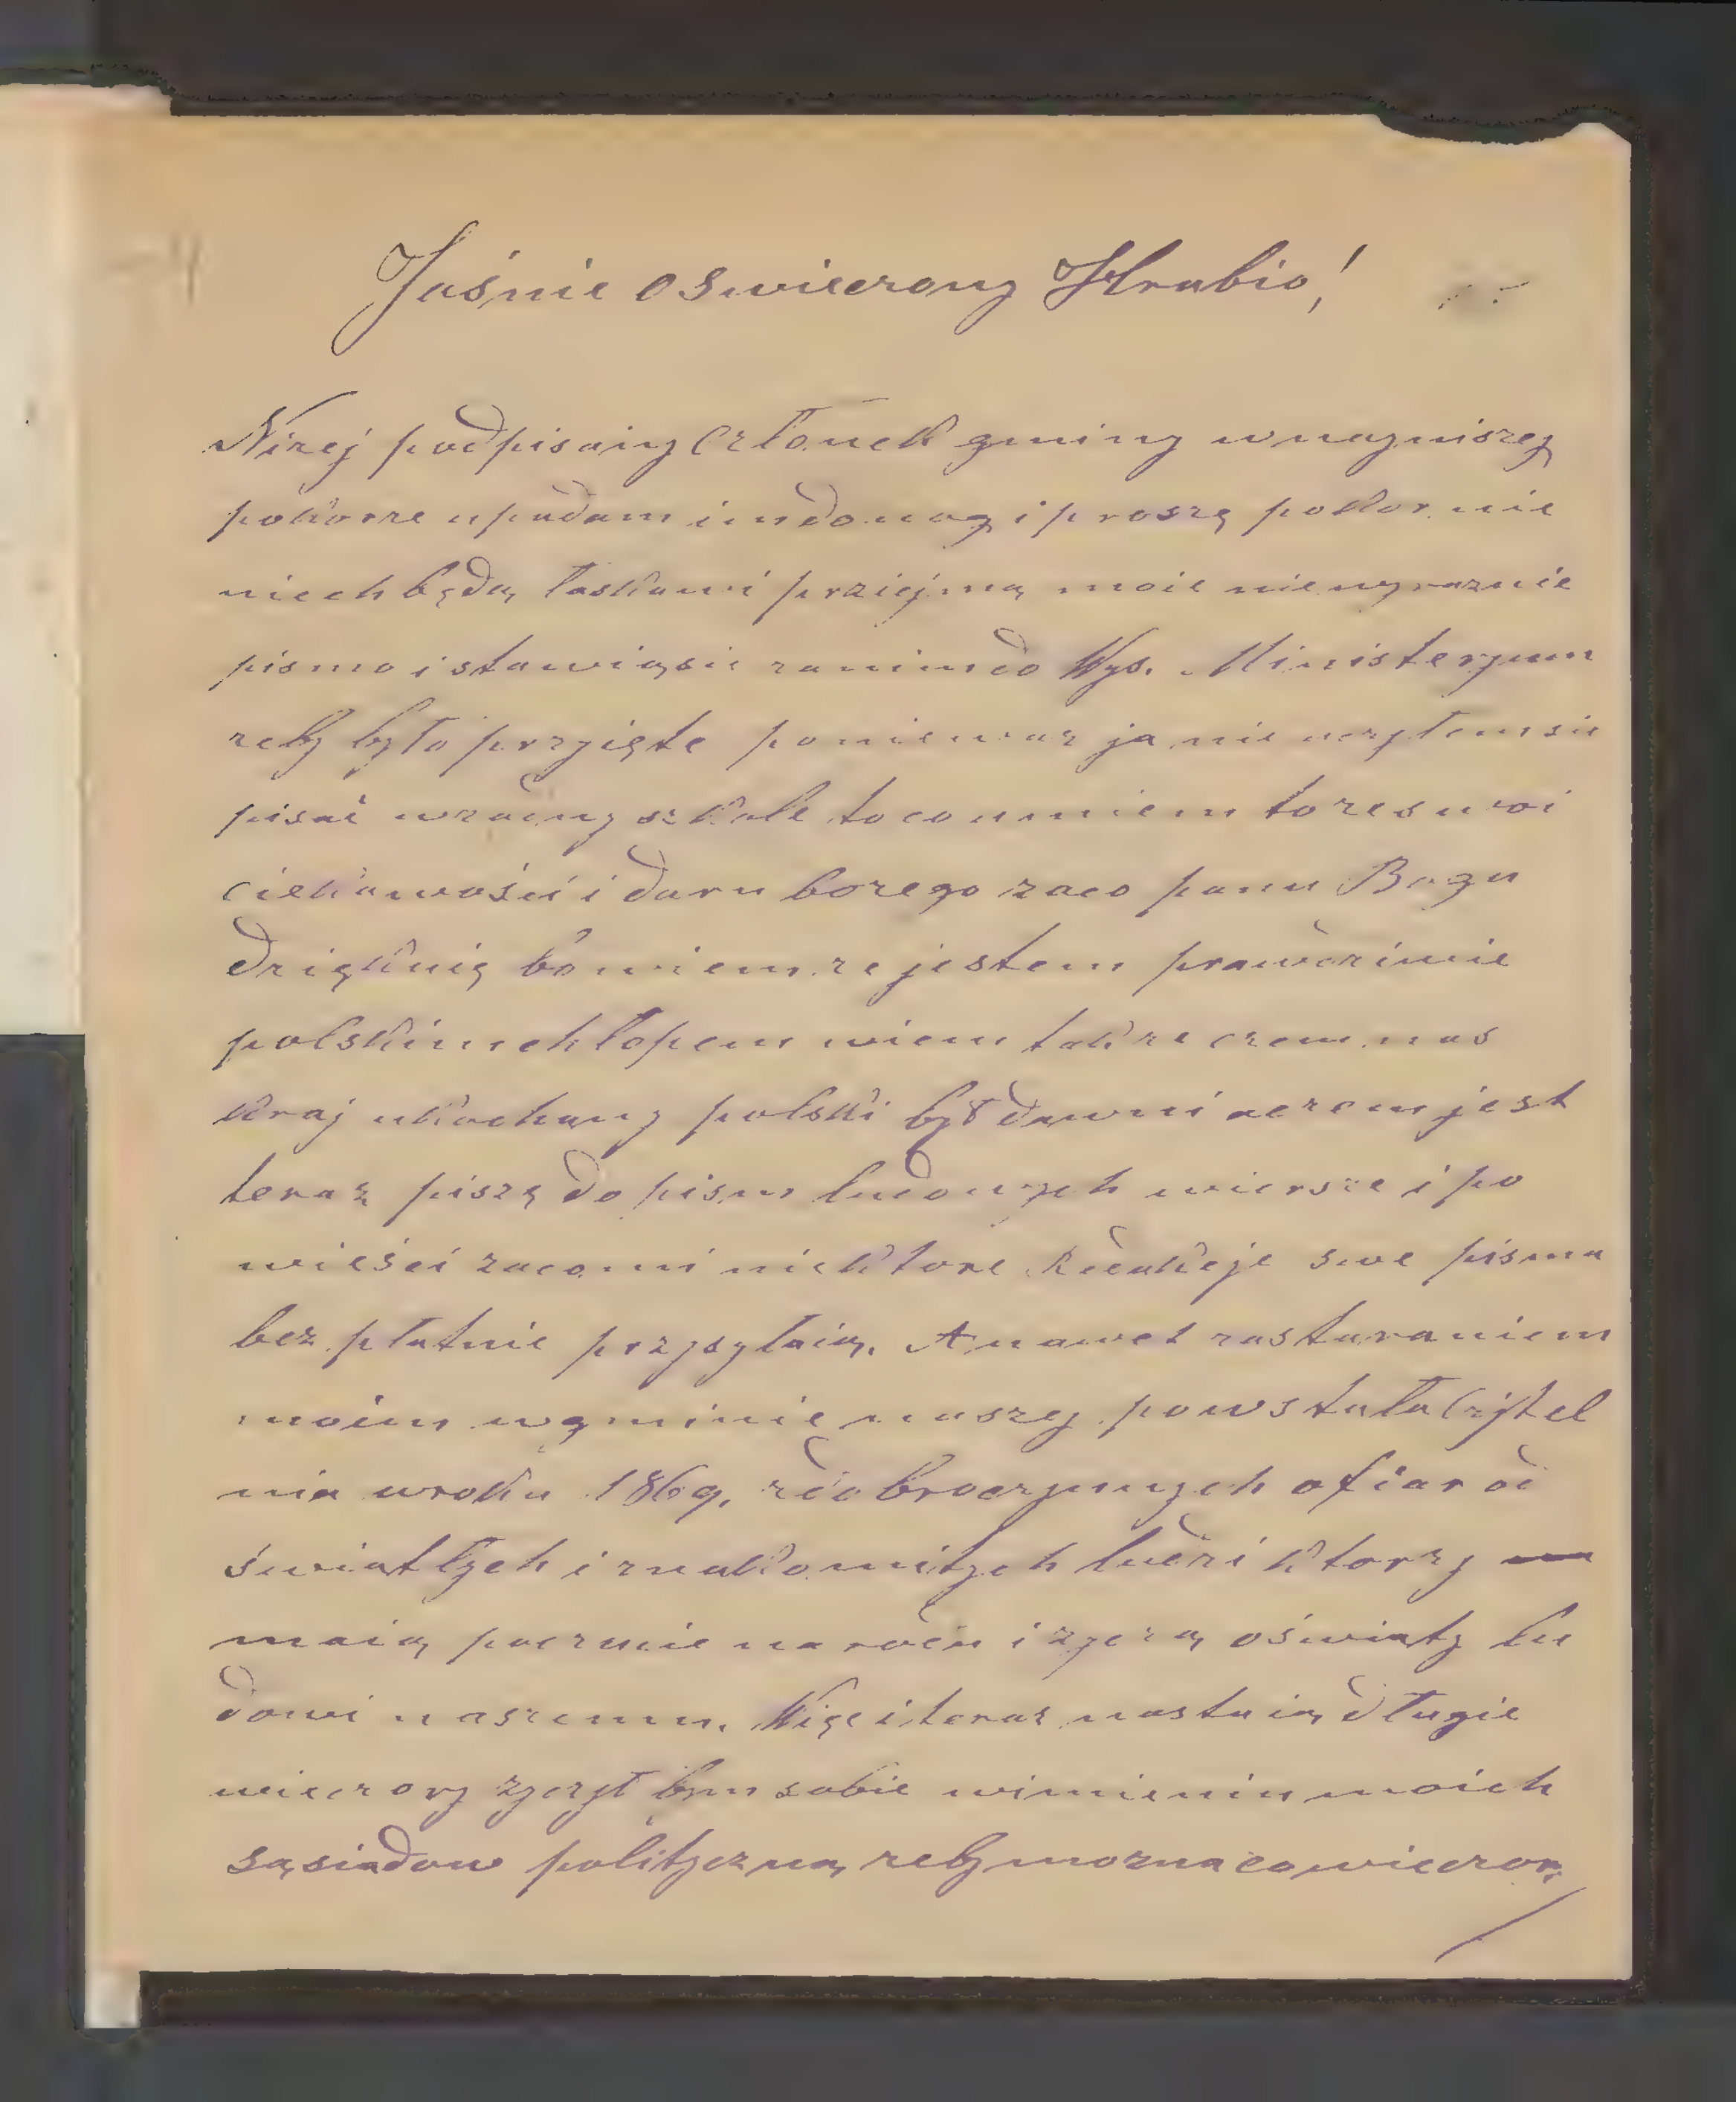 Jaśnie oswiecrony Hrabio!
Nirej podpisainy Crłonek gminy wnayniszej
pokorre upadam imdonog i proszę pokornie
niech będą łaskawi prziejmą moie niewyraznie
pismo i stawiąsie zanimdo Wys. Ministeryum
zeby było przyięte poniewaz ja nie uczyłemsie
pisać wzadny szkole tocoumiem tozeswoi
ciekawości i daru bozego zaco panu Bogu
dziękuię bowiem ze jestem prawdziwie
polskim chłopem wiem takze czem nas
kraj ukochany polski był dawni aczem jest
teraz piszę do pism ludowych wiersze i po
wieści zacomi niektore Redakcje swe pisma
bez płatnie przysyłaią. A nawet zastaraniem
moim wgminie naszej powstała Czytel
nia wroku 1869, zdobroczynnych ofiar od
światłych i znakomitych ludzi ktorzy
maią poczucie narodu i zyczą oświaty lu
dowi naszemu. Więc i teraz nastaią długie
wieczory zyczył bym sobie wimieniu moich
sąsiadow polityczną zeby mozna cowieczor